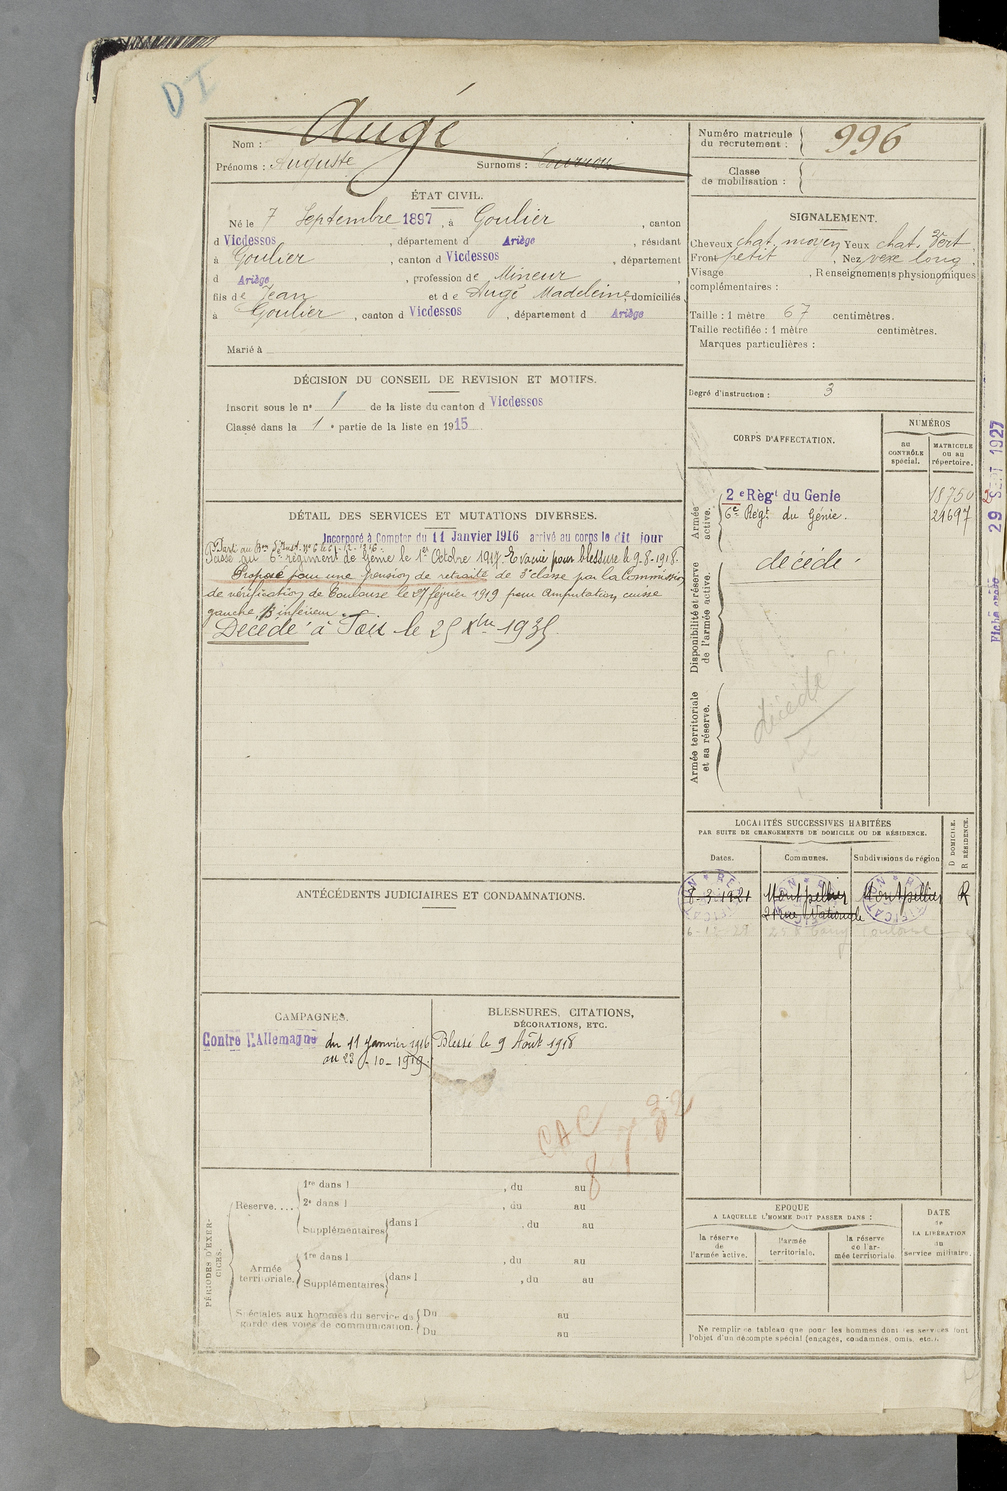 DI
Nom : Augé
Prénoms : Auguste Surnoms :
Numéro matricule du recrutement : 996
Classe de mobilisation :
ÉTAT CIVIL.
Né le 7 Septembre 1897, à Goulier, canton
d Vicdessos, département d Ariège, résidant
à Goulier, canton d Vicdessos, département
d Ariège, profession de Mineur
fils de Jean et de Augé Madeleine, domiciliés
à Goulier, canton d Vicdessos, département d Ariège
Marié à
SIGNALEMENT.
Cheveux chat. moyen Yeux chat. vert
Front petit. Nez vexe long.
Visage , Renseignements physionomiques
complémentaires :
Taille : 1 mètre 67 centimètres.
Taille rectifiée : 1 mètre centimètres.
Marques particulières :
Degré d'instruction : 3
DÉCISION DU CONSEIL DE REVISION ET MOTIFS.
Inscrit sous le n° 1 de la liste du canton d Vicdessos
Classé dans la 1e partie de la liste en 1915
DÉTAIL DES SERVICES ET MUTATIONS DIVERSES.
Incorporé à Compter du 11 Janvier 1916 arrivé au corps le dit jour
Passé au 6e régiment de Génie le 1er Octobre 1917. Evacué pour blessure le 9-8-1918.
Proposé pour une pension de retraite de 3e classe par la Commission
de vérification de Toulouse le 27 février 1919 pour amputation cuisse
gauche, inférieur.
Décédé à Foix le 25 Xbre 1935.
CORPS D'AFFECTATION.
NUMÉROS
au CONTRÔLE spécial.
MATRICULE ou au répertoire.
Armée active.
2e Régt du Génie 18750
6e Régt du Génie. 29697
Disponibilité et réserve de l'armée active.
décédé
Armée territoriale et sa réserve.
décédé
29 SEPT 1927
Fiche créée
LOCALITÉS SUCCESSIVES HABITÉES
PAR SUITE DE CHANGEMENTS DE DOMICILE OU DE RÉSIDENCE.
Dates. Communes. Subdivisions de région
D DOMICILE. R RÉSIDENCE.
8-3-1921 Montpellier Montpellier R
2 Rue Nationale
Toulouse
ANTÉCÉDENTS JUDICIAIRES ET CONDAMNATIONS.
CAMPAGNES.
Contre l'Allemagne du 11 janvier 1916
au 23-10-1919.
BLESSURES, CITATIONS,
DÉCORATIONS, ETC.
Blessé le 9 Août 1918
CAC
8 7 32
PÉRIODES D'EXERCICES.
Réserve.... 1re dans l , du au
2e dans l , du au
Supplémentaires dans l , du au
Armée territoriale. 1re dans l , du au
Supplémentaires dans l , du au
Spéciales aux hommes du service de garde des voies de communication. Du au
Du au
EPOQUE
A LAQUELLE L'HOMME DOIT PASSER DANS :
la réserve de l'armée active.
l'armée territoriale.
la réserve de l'armée territoriale
DATE de LA LIBÉRATION du service militaire.
Ne remplir ce tableau que pour les hommes dont les services font
l'objet d'un décompte spécial (engagés, condamnés, omis, etc.).